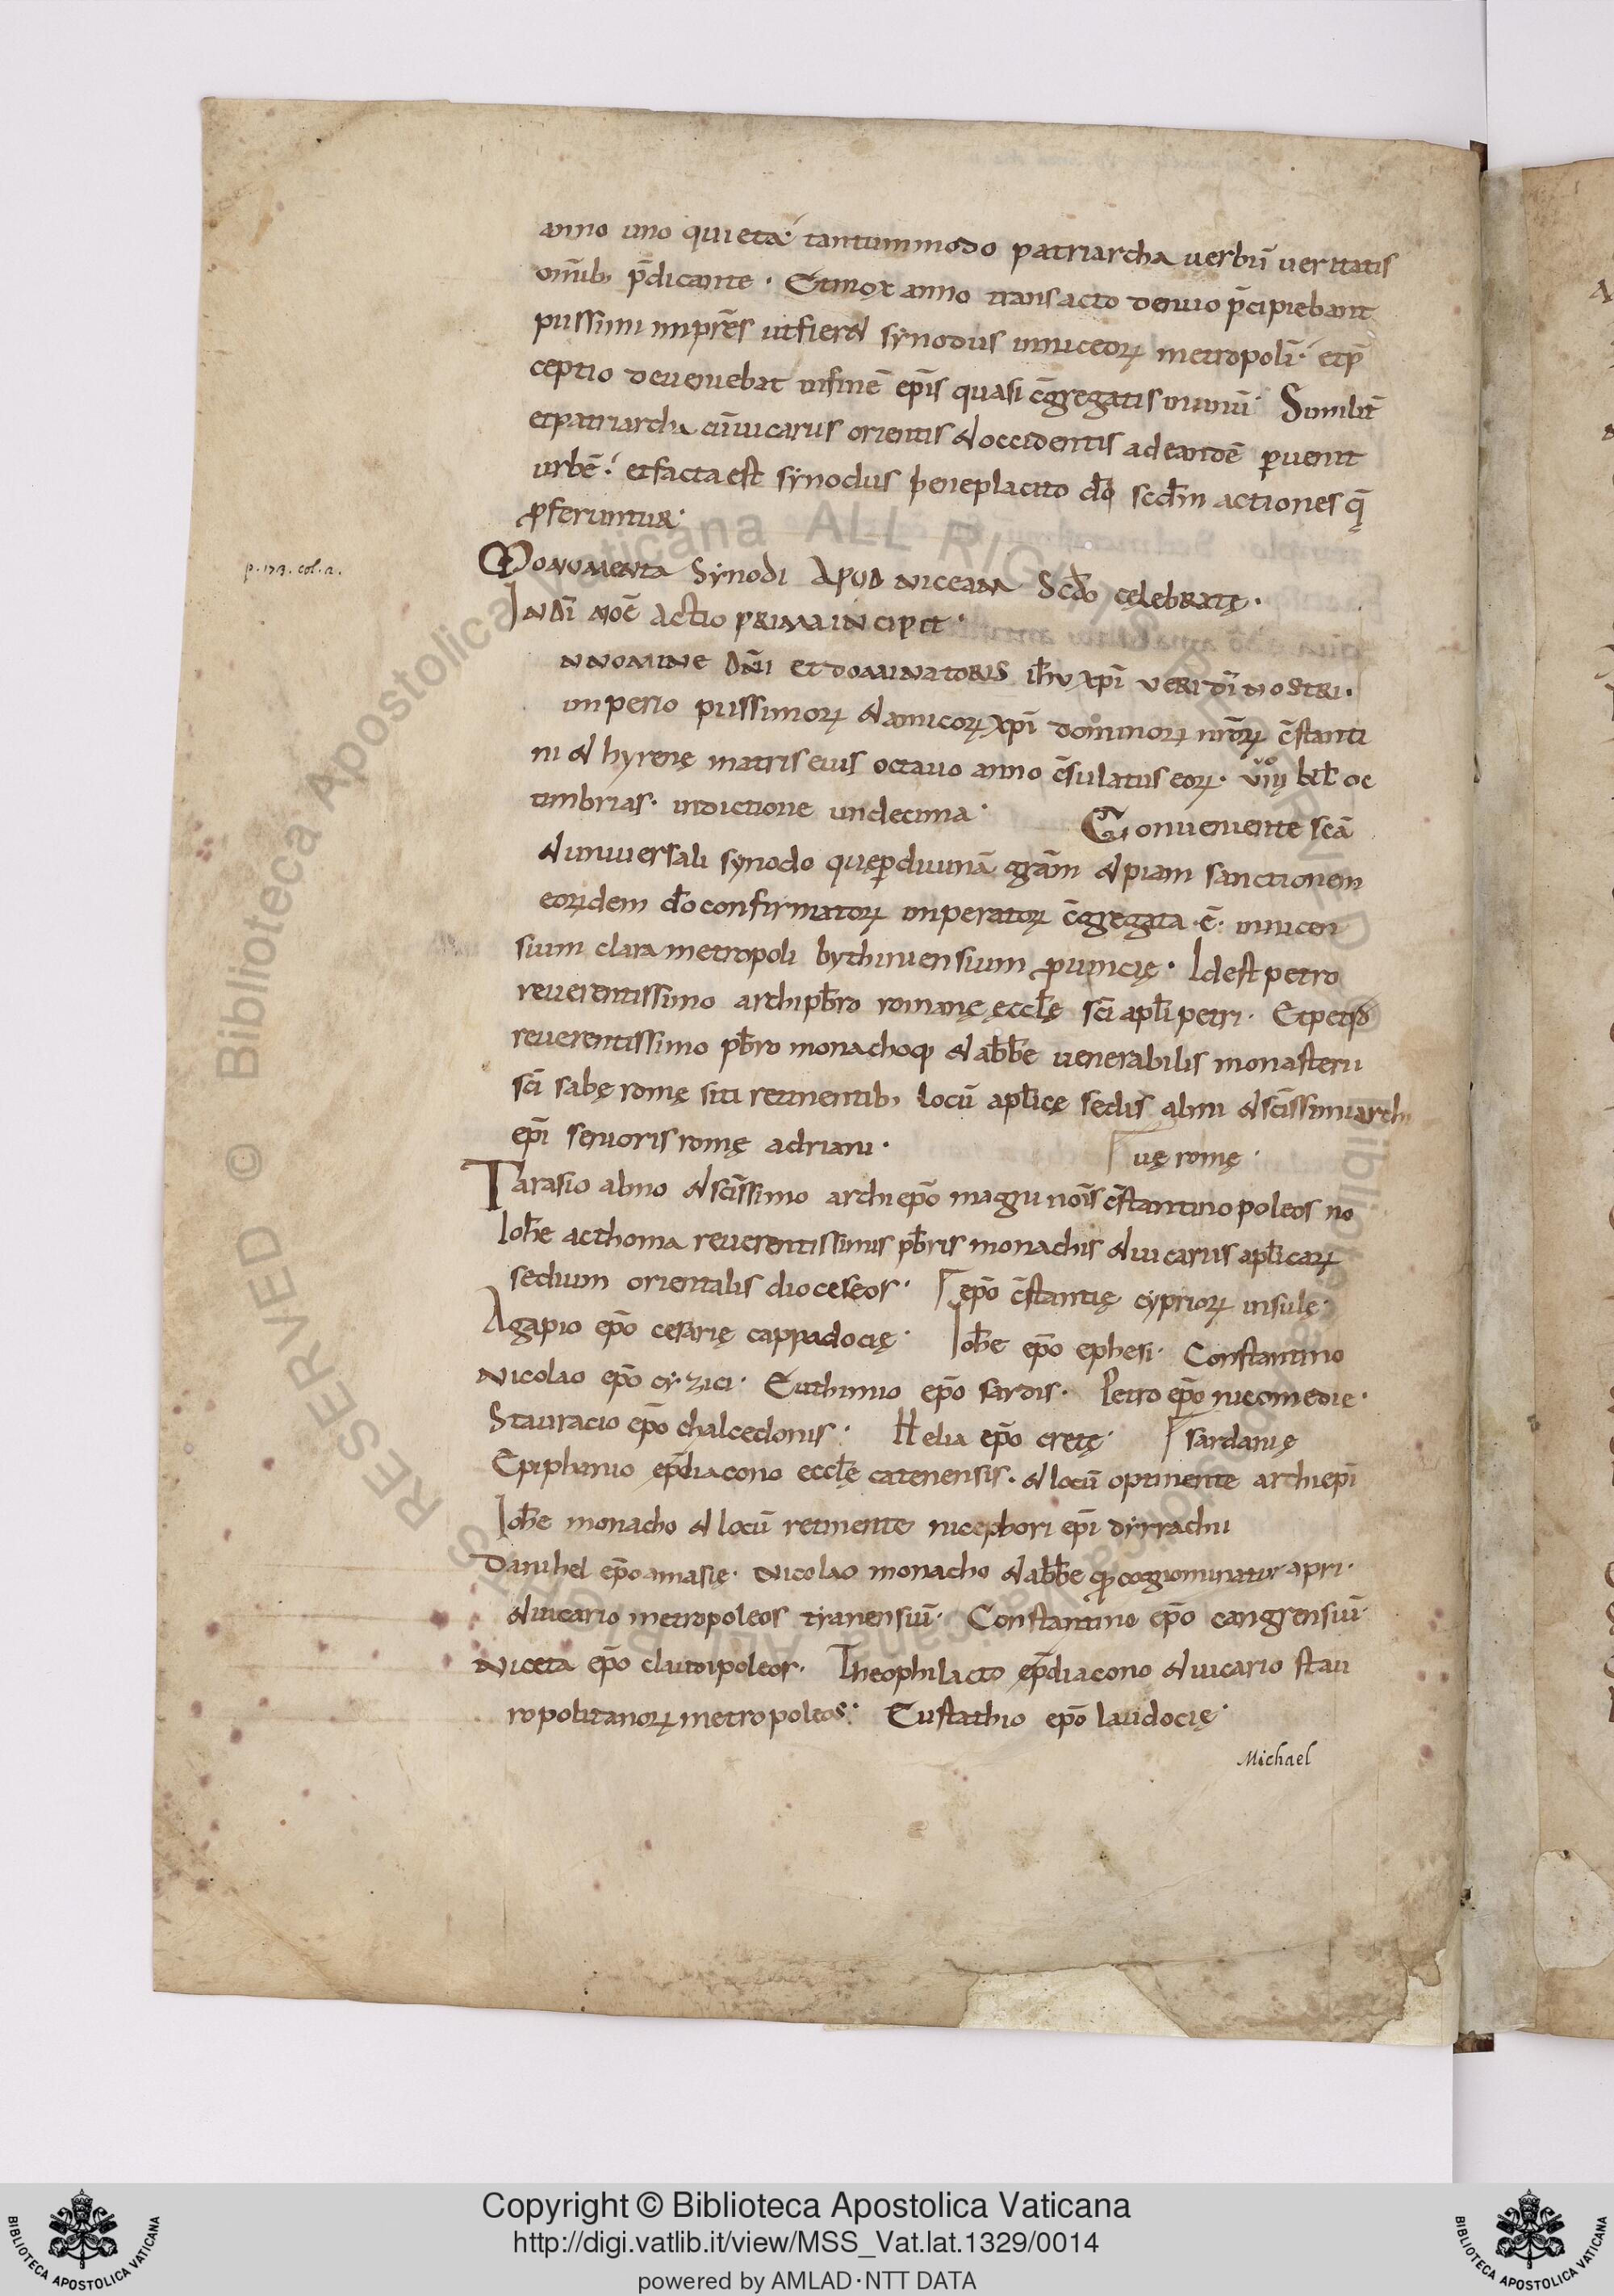 anno uno quieta· tantummodo patriarcha uerbū ueritatis
om̄ib; p̄dicante · Et mox anno transacto denuo p̄cipiebant
piissimi imp̄res ut fier& synodus in niceoꝝ metropoli· et p̄
ceptio deueniebat in finē ep̄is quasi c̄gregatis in unū· Similit̄
et patriarcha cū uicariis orientis & occidentis ad eandē ꝑuenit
urbē· et facta est synodus beneplacito dō scd̄m actiones q̨̄
ꝓferuntur·
p. 173. col. 2.
Monumenta Synodi Apud niceam Scd̄o celebratę·
In dī noē Actio prima incipit·
n nomine Dn̄i et dominatoris ih̄u xp̄i ueri dī nostri·
imperio piissimoꝝ & amicoꝝ xp̄i dominoꝝ nr̄oꝝ c̄stanti
ni & hyrenę matris eius octauo anno c̄sulatus eoꝝ· viii kl̄ oc
timbrias· indictione undecima· Conueniente sc̄a
& uniuersali synodo quę ꝑ diuinā gr̄am & piam sanctionem
eoꝝdem dō confirmatoꝝ imperatoꝝ c̄gregata ·ē· in nicen
sium clara metropoli bythiniensium ꝓuincię· Id est petro
reuerentissimo archipb̄ro romanę ęccl̄ę sc̄i apl̄i petri· Et petro
reuerentissimo pb̄ro monachoq; & abb̄e uenerabilis monasterii
sc̄i sabę romę siti retinentib; locū apl̄icę sedis almi & sc̄issimi archi
ep̄i senioris romę adriani· uę romę·
Tarasio almo & sc̄issimo archiep̄o magni nōis c̄stantinopoleos no
Ioh̄e ac thoma reuerentissimis pb̄ris monachis & uicariis apl̄icaꝝ
sedium orientalis dioceseos· ep̄o c̄stantię cyprioꝝ insulę·
Agapio ep̄o cesarię cappadocię· Ioh̄e ep̄o ephesi· Constantino
Nicolao ep̄o cyzici· Euthimio ep̄o sardis· Petro ep̄o nicomedie·
Stauracio ep̄o chalcedonis· Helia ep̄o cretę· sardanię
Epiphanio ep̄o diacono eccl̄ę catenensis· & locū optinente archiep̄i
Ioh̄e monacho & locū retinente nicephori ep̄i dyrrachii
Danihel ep̄o amasię· Nicolao monacho & abb̄e q cognominatur apri·
& uicario metropoleos tyanensiū· Constantino ep̄o cangrensiū·
Niceta ep̄o claudipoleos· Theophilacto diacono & uicario stau
ropolitanoꝝ metropoleos· Eustathio ep̄o laudocię·
Michael
Copyright © Biblioteca Apostolica Vaticana
http://digi.vatlib.it/view/MSS_Vat.lat.1329/0014
powered by AMLAD·NTT DATA
BIBLIOTECA APOSTOLICA VATICANA
BIBLIOTECA APOSTOLICA VATICANA